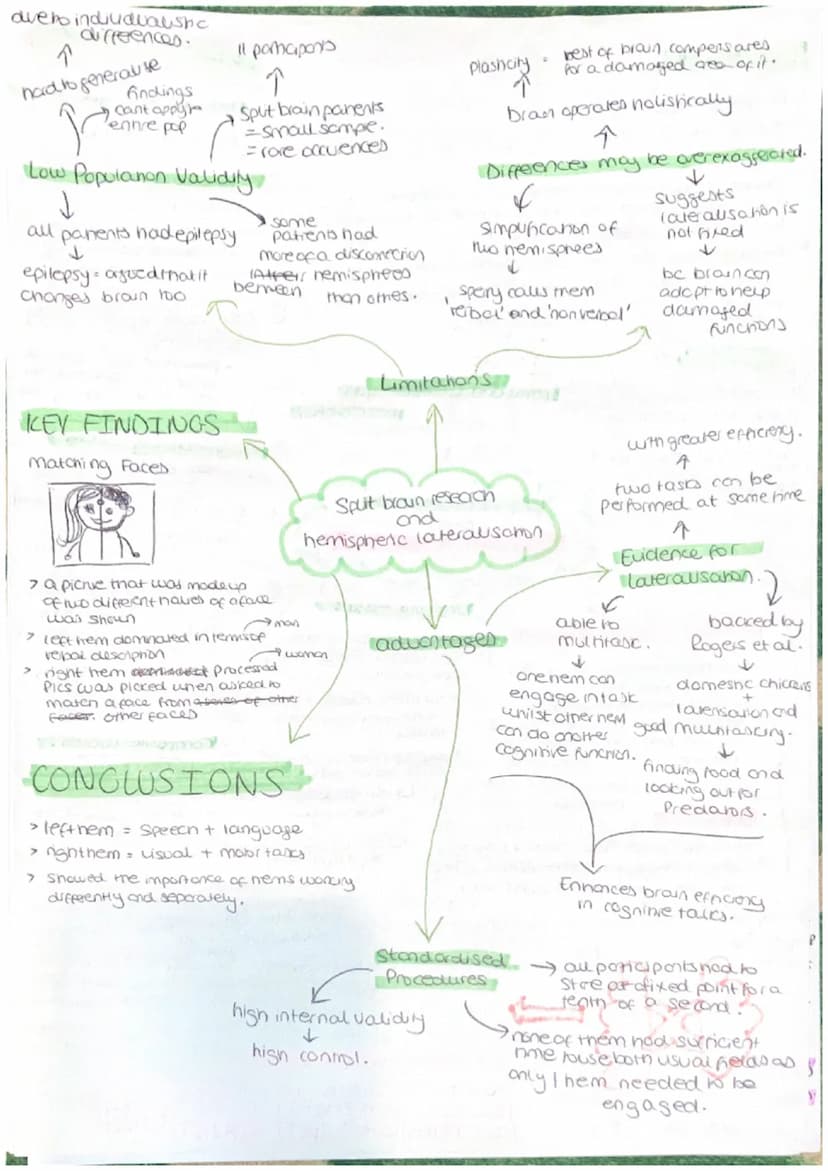 due to individualistic
differences.
hard to generalise
findings
cant apply to
entire pop
11 participants
Split brain patients
= small sample.
= rare occurences
Low Population Validity
all patients had epilepsy
epilepsy =
changes brain too
some
patients had
more of a disconnection
between
hemispheres
than others.
Plasticity = rest of brain compensates
for a damaged area of it.
brain operates holistically
Differences may be overexaggerated.
simplification of
two hemispheres
Sperry calls them
'verbal' and 'nonverbal'
suggests
lateralisation is
not fixed
bc brain can
adapt to help
damaged
functions
Limitations
KEY FINDINGS
Matching Faces
> a picture that was made up
of two different halves of a face
was shown
> left hem dominated in terms of → man
verbal description
> right hem processed → woman
pics was picked when asked to
match a face from
other faces
Split brain research
and
hemispheric lateralisation
with greater efficiency.
two tasks can be
performed at same time
Evidence for
lateralisation.
advantages
able to
multitask.
one hem can
engage in task
whilst other hem
can do another
cognitive function.
backed by
Rogers et al.
domestic chickens
+
lateralisation and
good multitasking.
finding food and
looking out for
predators.
Enhances brain efficiency
in cognitive talks.
CONCLUSIONS
> left hem = speech + language
> right hem = visual + motor tasks
> showed the importance of hems working
differently and separately.
Standardised
Procedures
high internal validity
high control.
→ all participants had to
stare at fixed point for a
tenth of a second.
none of them had sufficient
time to use both visual fields as
only 1 hem needed to be
engaged.